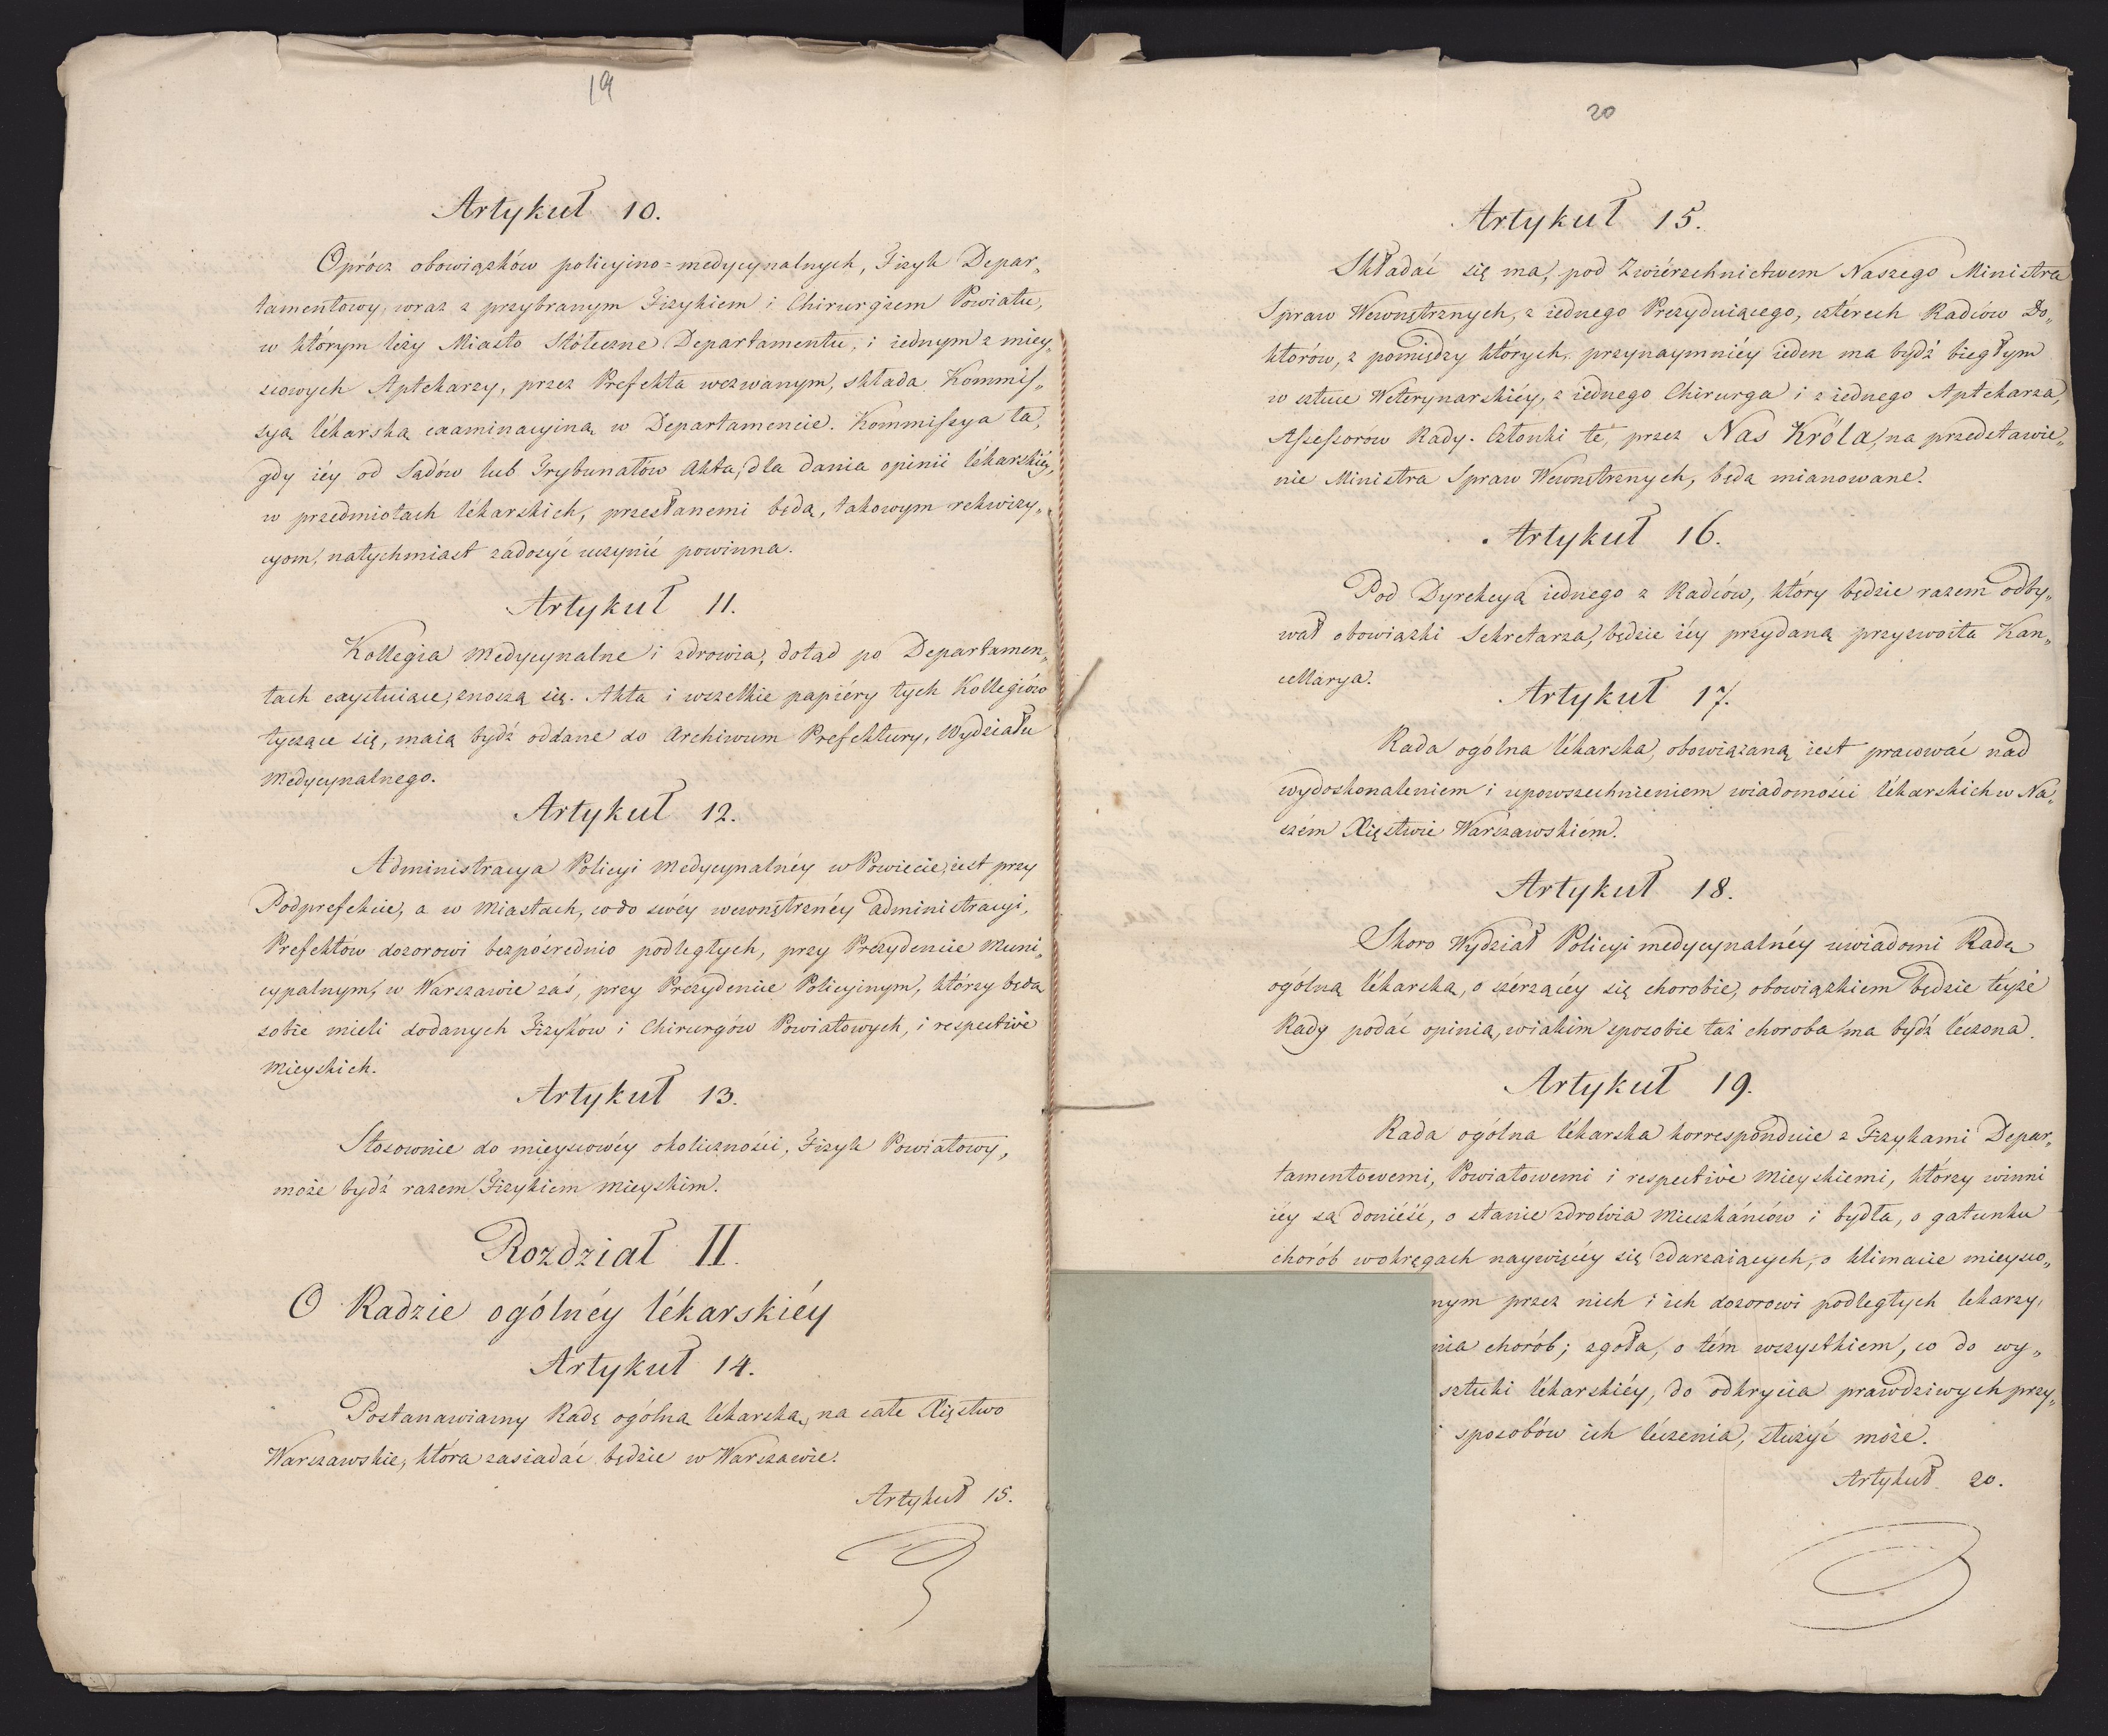 19
Artykuł 10.
Oprócz obowiązków policyino=medycynalnych, Fizyk Depar„
tamentowy, wraz z przybranym Fizykiem i Chirurgiem Powiatu,
w którym leży Miasto Stołeczne Departamentu, i iednym z miey„
scowych Aptekarzy, przez Prefekta wezwanym, składa Kommis„
syą lékarską examinacyiną w Departamencie. Kommissya ta,
gdy iéy od Sądów lub Trybunałów Akta, dla dania opinii lékarskiéy,
w przedmiotach lékarskich, przesłanemi będą, takowym rekwizy„
cyom, natychmiast zadosyć uczynić powinna.
Artykuł 11.
Kollegia Medycynalne i zdrowia, dotąd po Departamen„
tach exystuiące, znoszą się. Akta i wszelkie papiéry tych Kollegiów
tyczące się, maią bydź oddane do Archiwum Prefektury, Wydziału
Medycynalnego.
Artykuł 12.
Administracya Policyi Medycynalnéy w Powiecie, iest przy
Podprefekcie, a w Miastach, co do swéy wewnętrznéy administracyi,
Prefektów dozorowi bezpośrednio podległych, przy Prezydencie Muni„
cypalnym, w Warszawie zaś, przy Prezydencie Policyinym, którzy będą
sobie mieli dodanych Fizyków i Chirurgów Powiatowych, i respective
Mieyskich.
Artykuł 13.
Stosownie do mieyscowéy okoliczności, Fizyk Powiatowy,
może bydź razem Fizykiem Mieyskim.
Rozdział II.
O Radzie ogólnéy lékarskiéy
Artykuł 14.
Postanawiamy Radę ogólną lékarską, na całe Xięstwo
Warszawskie, która zasiadać będzie w Warszawie.
Artykuł 15.
20
Artykuł 15.
Składać się ma, pod Zwiérzchnictwem Naszego Ministra
Spraw Wewnętrznych, z iednego Prezyduiącego, cztérech Radców Do„
ktorów, z pomiędzy których, przynaymniéy ieden ma bydź biegłym
w sztuce Weterynarskiéy, z iednego Chirurga i z iednego Aptekarza,
Assessorów Rady. Członki te, przez Nas Króla, na przedstawie„
nie Ministra Spraw Wewnętrznych, będą mianowane.
Artykuł 16.
Pod Dyrekcyą iednego z Radców, który będzie razem odby„
wał obowiązki Sekretarza, będzie iéy przydaną przyzwoita Kan„
cellarya.
Artykuł 17.
Rada ogólna lékarska, obowiązaną iest pracować nad
wydoskonaleniem i upowszechnieniem wiadomości lékarskich w Na„
szém Xięstwie Warszawskiém.
Artykuł 18.
Skoro Wydział Policyi medycynalnéy uwiadomi Radę
ogólną lékarską, o szérzącéy się chorobie, obowiązkiem będzie téyże
Rady podać opinią, w iakim sposobie taż choroba ma bydź léczona.
Artykuł 19.
Rada ogólna lékarska korresponduie z Fizykami Depar„
tamentowemi, Powiatowemi i respective Mieyskiemi, którzy winni
iéy są donieść, o stanie zdrowia Mieszkańców i bydła, o gatunku
chorób w okręgach naywięcéy się zdarzaiących, o klimacie mieysco„
nym przez nich i ich dozorowi podległych lekarzy,
nia chorób; zgoła, o tém wszystkiem, co do wy„
sztuki lékarskiéy, do odkrycia prawdziwych przy„
i sposobów ich léczenia, służyć może.
Artykuł 20.